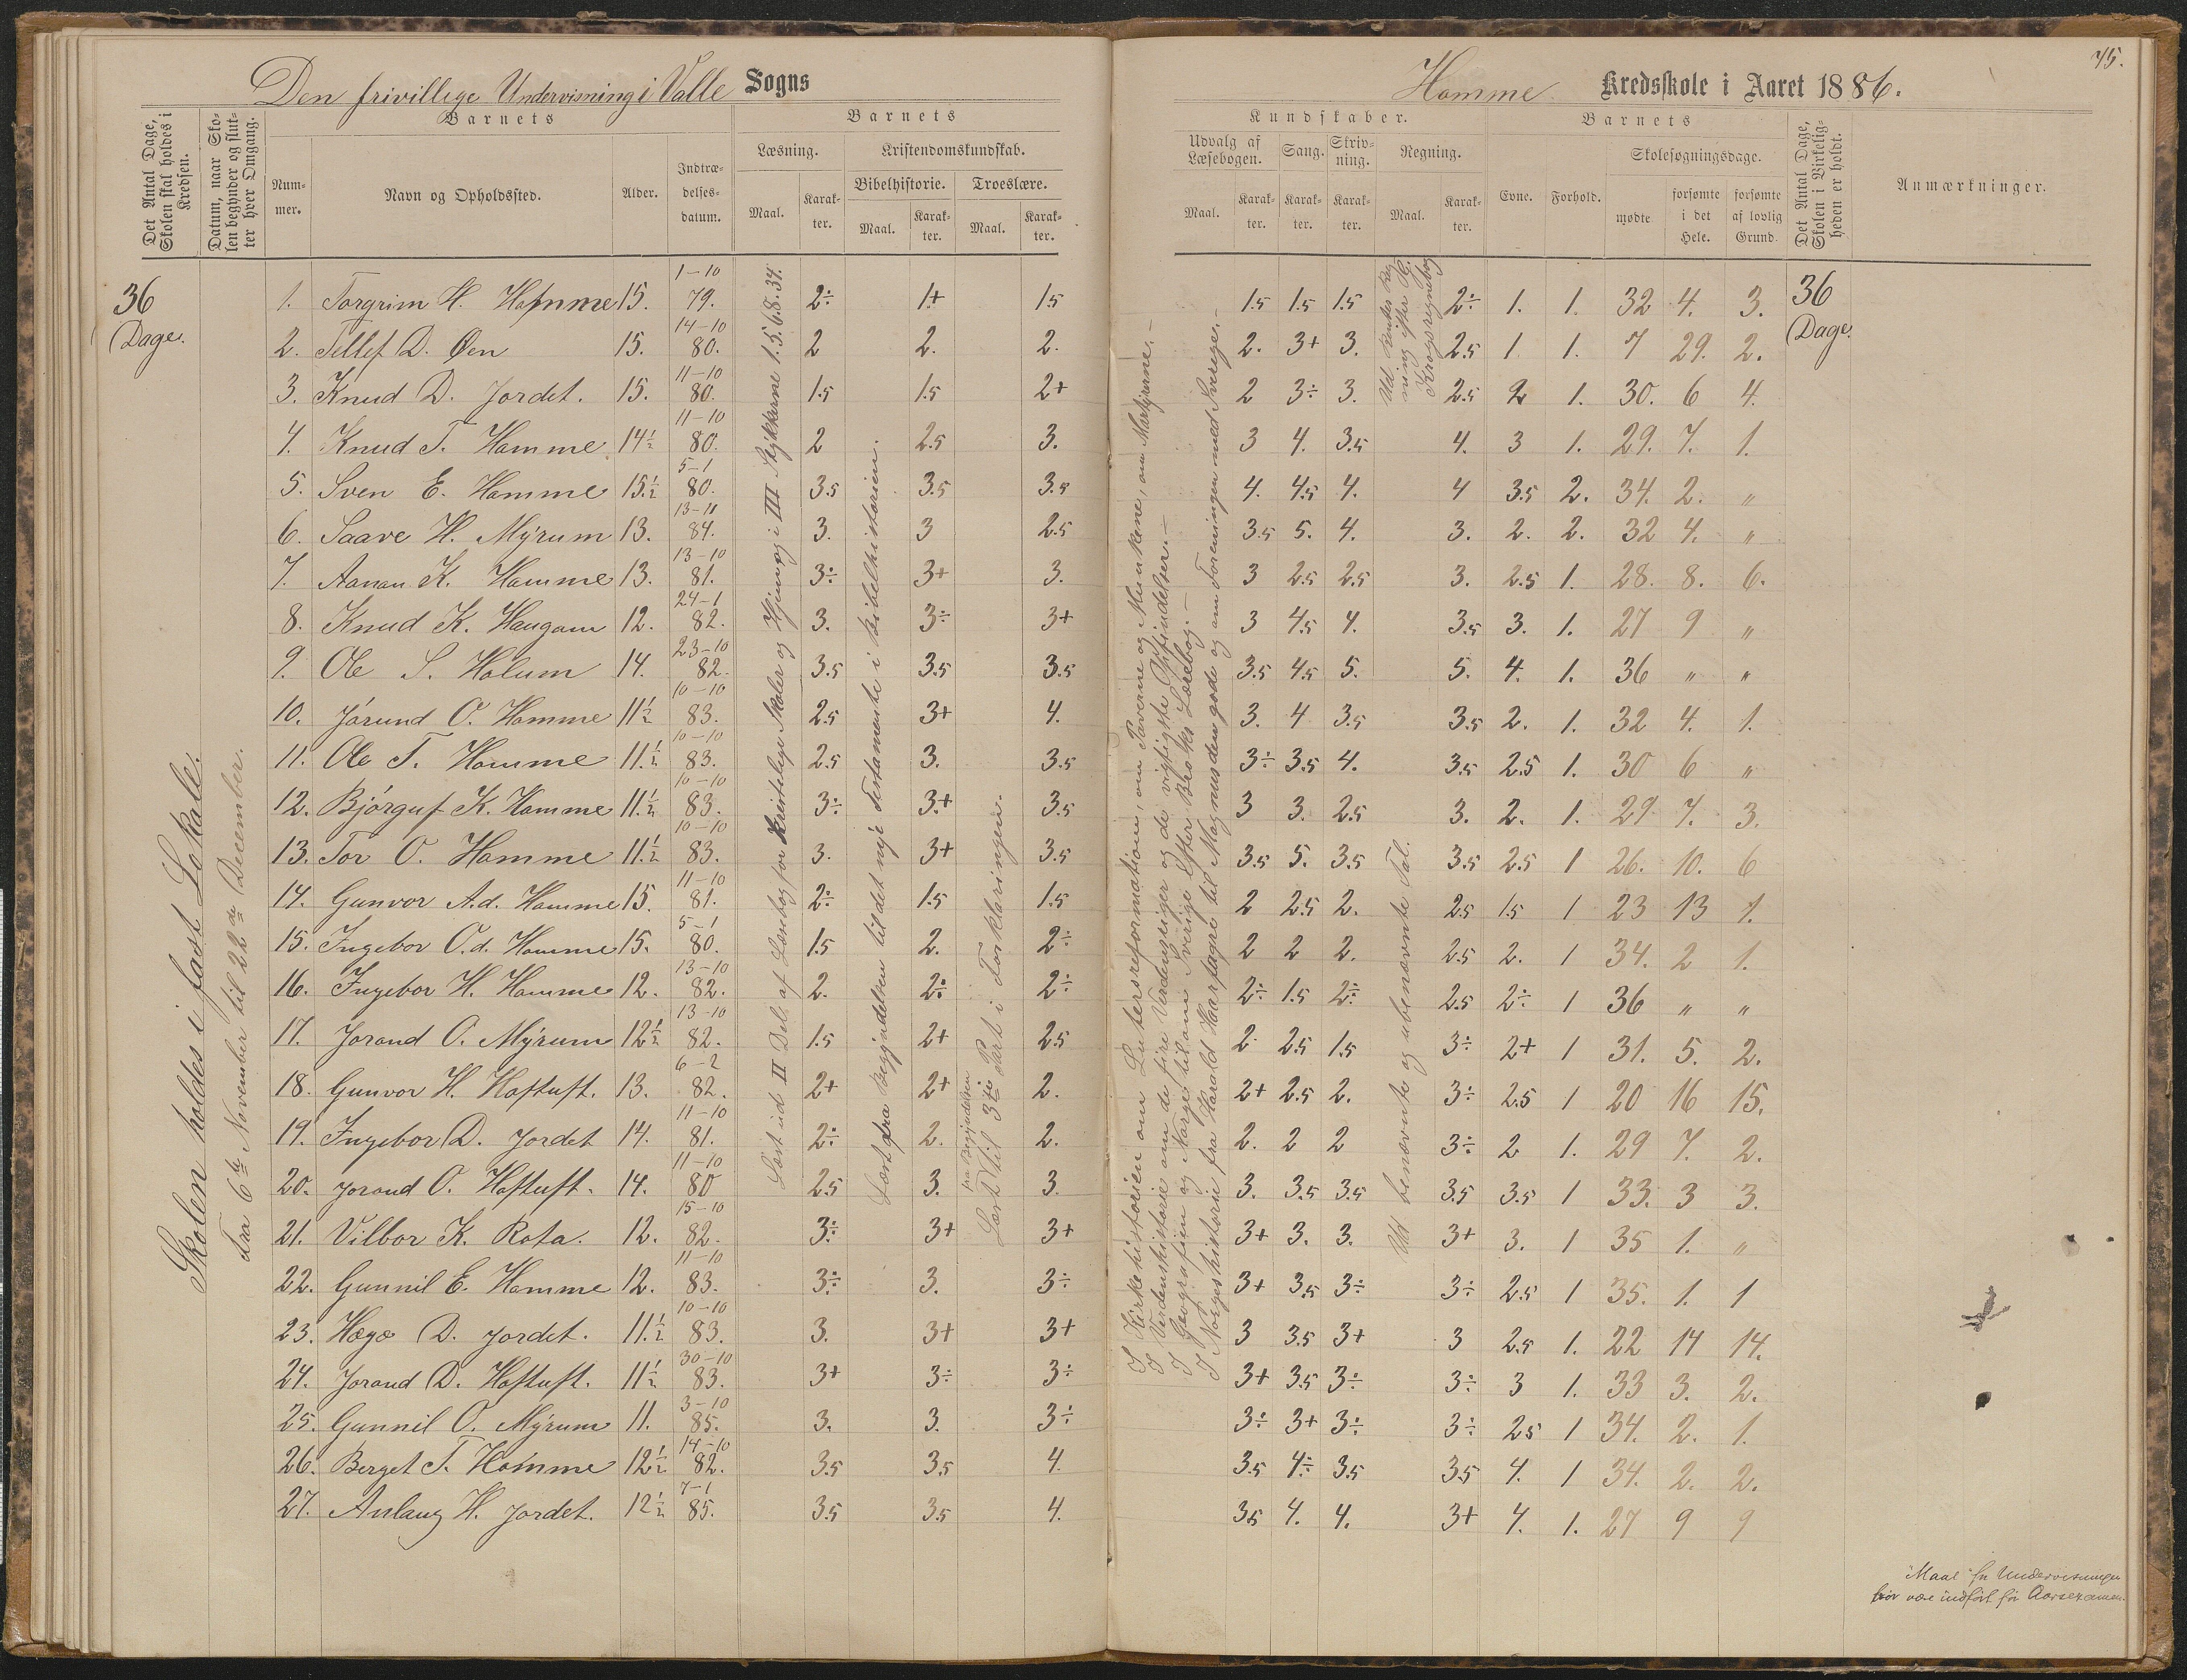 Den frivillige Undervisning i Valle Sogns
Det Antal Dage, Skolen skal holdes i Kredsen.
Datum, naar Skolen begynder og slutter hver Omgang.
Barnets
Nummer.
Navn og Opholdssted.
Alder.
Indtrædelsesdatum.
Barnets
Læsning.
Kristendomskundskab.
Bibelhistorie. Troeslære.
Maal. Karakter. Maal. Karakter. Maal. Karakter.
36 Dage.
Skolen holdes i fast Lokale.
Fra 6te November til 22de December.
1. Torgrim H. Homme 15. 1-10 79. 2÷ 1+ 1.5
2. Tellef D. Øen 15. 14-10 80. 2 2. 2.
3. Knud D. Jordet. 15. 11-10 80. 1.5 1.5 2+
4. Knud T. Homme 14½ 11-10 80. 2 2.5 3.
5. Sven E. Homme 15.½ 5-1 80. 3.5 3.5 3.5
6. Saave H. Myrum 13. 84. 3. 3 2.5
7. Aanon K. Homme 13. 13-10 81. 3÷ 3+ 3.
8. Knud K. Haugom 12. 24-1 82. 3. 3÷ 3+
9. Ole S. Holum 14. 23-10 82. 3.5 3.5 3.5
10. Jórund O. Homme 11½ 10-10 83. 2.5 3+ 4.
11. Ole T. Homme 11.½ 10-10 83. 2.5 3. 3.5
12. Bjórguf K. Homme 11.½ 10-10 83. 3÷ 3+ 3.5
13. Tor O. Homme 11.½ 10-10 83. 3. 3+ 3.5
14. Gunvor A.d. Homme 15. 11-10 81. 2÷ 1.5 1.5
15. Ingebor O.d. Homme 15. 5-1 80. 1.5 2. 2÷
16. Ingebor H. Homme 12. 13-10 82. 2. 2÷ 2÷
17. Jorand O. Myrum 12½ 13-10 82. 1.5 2+ 2.5
18. Gunvor H. Hoftuft. 13. 6-2 82. 2+ 2+ 2.
19. Ingebor D. Jordet 14. 11-10 81. 2÷ 2. 2.
20. Jorand O. Hoftuft. 14. 11-10 80 2.5 3. 3.
21. Vilbor K. Rota. 12. 15-10 82. 3÷ 3+ 3+
22. Gunnil E. Homme 12. 11-10 83. 3÷ 3. 3÷
23. Hæge D. Jordet. 11.½ 10-10 83. 3. 3+ 3+
24. Jorand D. Hoftuft. 11½ 30-10 83. 3+ 3÷ 3÷
25. Gunnil O. Myrum 11. 3-10 85. 3. 3. 3÷
26. Berget T. Homme 12½ 14-10 82. 3.5 3.5 4.
27. Aslaug H. Jordet. 12½ 7-1 85. 3.5 3.5 4.
Læst ud II Del. af Læsebog for Kristelige Skoler og Hjem og i III Stykkerne 1. 5. 6. 8. 34.
Læst fra Begyndelsen til det nye Testamente i Bibelhistorien.
fra Begyndelsen
Læst til 3die Part i Forklaringen.
75.
Homme Kredsskole i Aaret 1886.
Kundskaber.
Udvalg af Læsebogen. Sang. Skrivning. Regning.
Maal. Karakter. Karakter. Karakter. Maal. Karakter.
Barnets
Evne. Forhold.
Skolesøgningsdage.
mødte
forsømte i det Hele.
forsømte af lovlig Grund.
Det Antal Dage, Skolen i Virkeligheden er holdt.
Anmærkninger.
36 Dage.
1.5 1.5 1.5 2÷ 1. 1. 32 4. 3.
2. 3+ 3. 2.5 1 1. 7 29. 2.
2 3÷ 3. 2.5 2 1. 30. 6 4.
3 4. 3.5 4. 3 1. 29. 7. 1.
4. 4.5 4. 4 3.5 2. 34. 2. "
3.5 5. 4. 3. 2. 2. 32 4. "
3 2.5 2.5 3. 2.5 1. 28. 8. 6.
3 4.5 4. 3.5 3. 1. 27 9 "
3.5 4.5 5. 5. 4. 1. 36 " "
3. 4 3.5 3.5 2. 1. 32 4. 1.
3÷ 3.5 4. 3.5 2.5 1. 30 6 "
3 3. 2.5 3. 2. 1. 29. 7. 3.
3.5 5. 3.5 3.5 2.5 1 26. 10. 6
2 2.5 2. 2.5 1.5 1 23 13 1.
2 2 2. 2.5 2. 1 34. 2 1.
2÷ 1.5 2÷ 2.5 2÷ 1 36 " "
2 2.5 1.5 3÷ 2+ 1 31. 5. 2.
2+ 2.5 2. 3÷ 2.5 1 20 16 15.
2. 2 2 3÷ 2 1. 29 7. 2.
3. 3.5 3.5 3.5 3.5 1 33. 3 3.
3+ 3. 3. 3+ 3. 1 35 1. "
3+ 3.5 3÷ 3÷ 2.5 1 35. 1. 1
3 3.5 3+ 3 2.5 1. 22 14 14.
3+ 3.5 3÷ 3÷ 3 1. 33 3. 2.
3÷ 3+ 3÷ 3÷ 2.5 1 34. 2. 1.
3.5 4÷ 3.5 3.5 4. 1 34. 2. 2.
3.5 4. 4. 3+ 4. 1. 27 9 9
I Kirkehistorien om Luthersreformationen, om Paverne og Munkene, om Martyrerne.
I Verdenshistorie om de fire Verdensriger og de vigtigste Opfindelser.
I Geografien og Norge til om Sverige efter Broks Læsebog.
I Norgeshistorie fra Harald Haarfagre til Magnus den gode og om Foreningen med Sverige.
Ud benævnte og ubenævnte Tal.
ning efter
Krogs regnebog
"Maal" for Undervisningen
bør være indført før Aarsexamen.